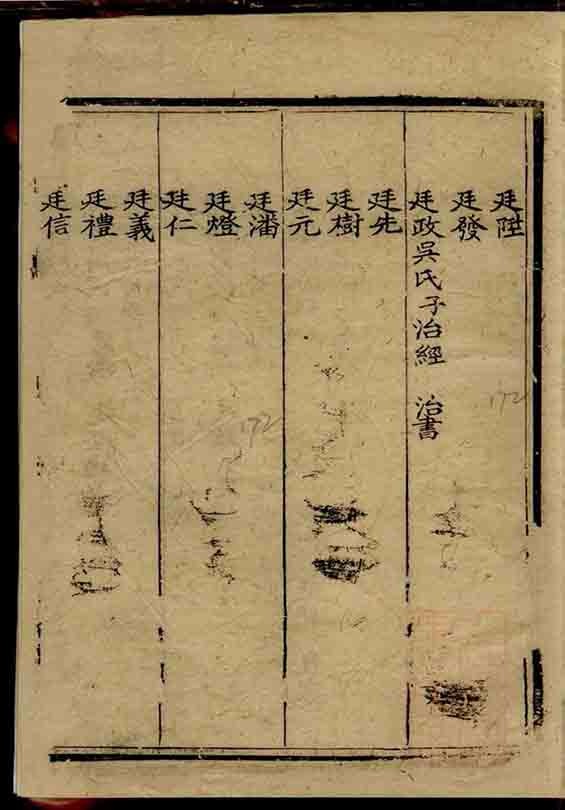 廷陞
廷發
廷政吳氏子治經　治書
廷先
廷樹
廷元
廷潘
廷燈
廷仁
廷義
廷禮
廷信
172
172